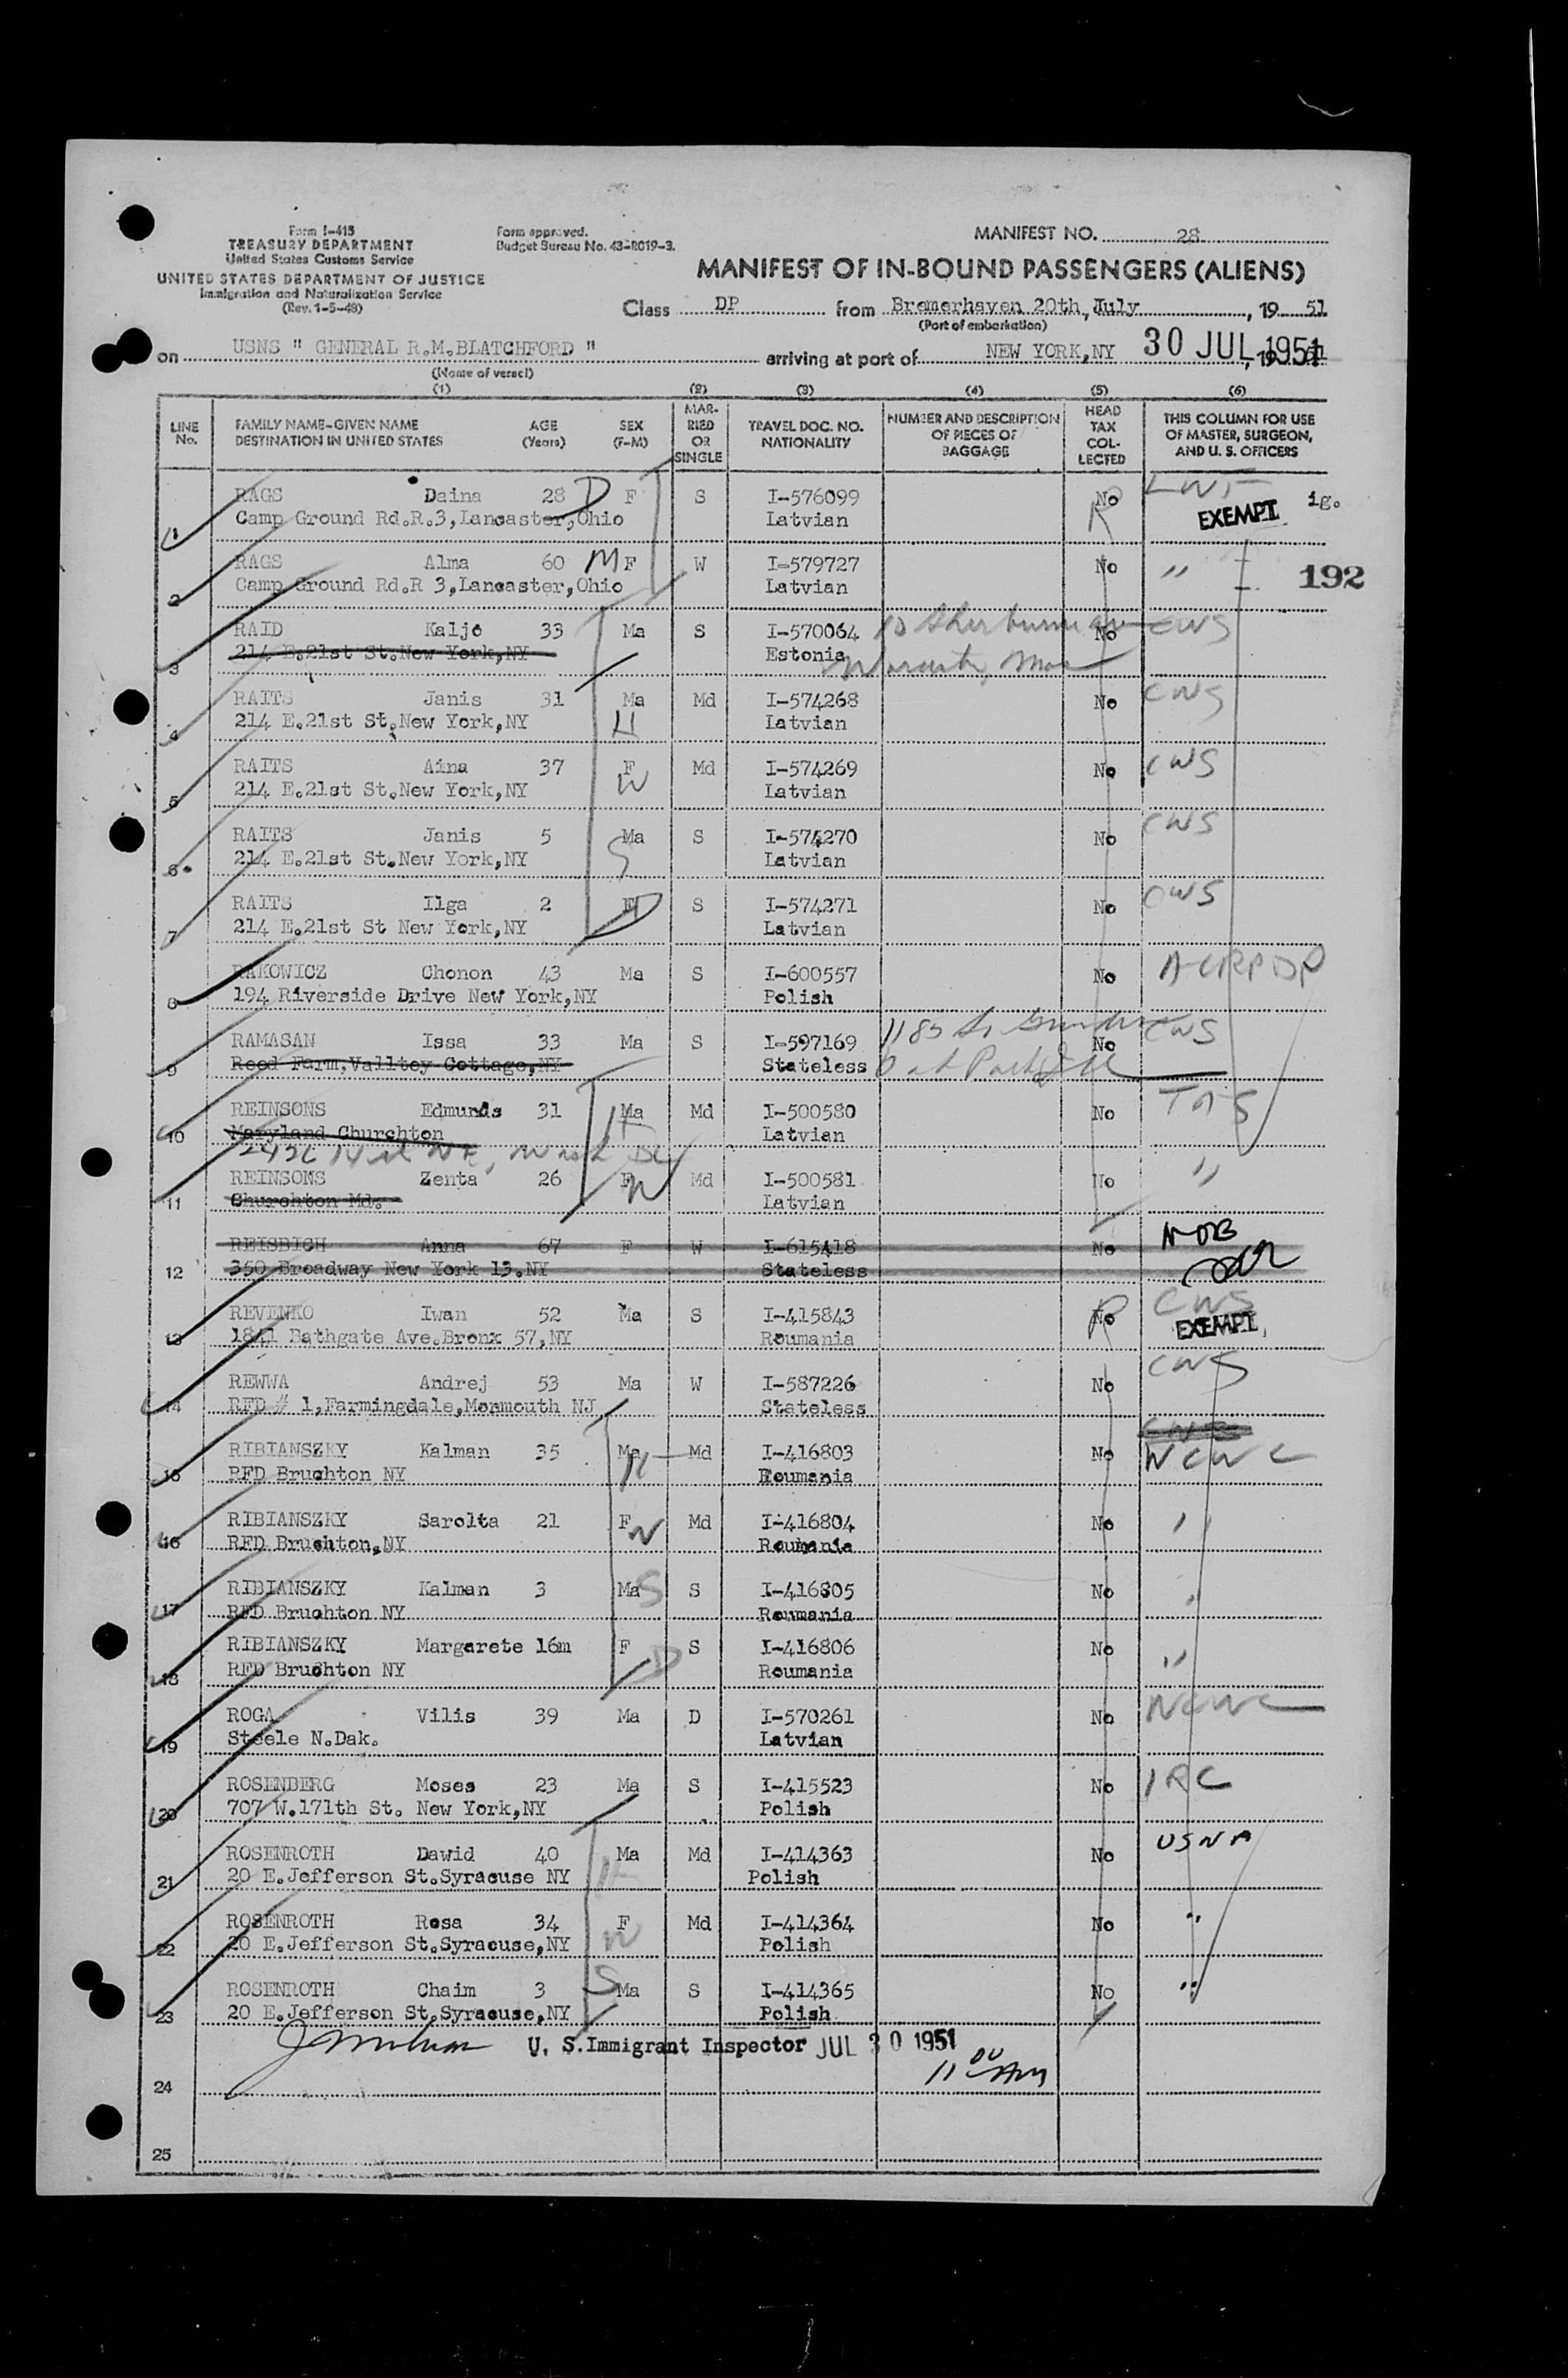 Form I-415
TREASURY DEPARTMENT
United States Customs Service
UNITED STATES DEPARTMENT OF JUSTICE
Immigration and Naturalization Service
(Rev. 1-5-49)
Form approved.
Budget Bureau No. 43-R019-3.
MANIFEST NO. 28
MANIFEST OF IN-BOUND PASSENGERS (ALIENS)
Class DP from Bremerhaven 20th, July, 19 51
(Port of embarkation)
on USNS " GENERAL R.M.BLATCHFORD " arriving at port of NEW YORK,NY 30 JUL 1951, 19
(Name of vessel)
(1) (2) (3) (4) (5) (6)
LINE No. FAMILY NAME-GIVEN NAME DESTINATION IN UNITED STATES AGE (Years) SEX (F-M) MARRIED OR SINGLE TRAVEL DOC. NO. NATIONALITY NUMBER AND DESCRIPTION OF PIECES OF BAGGAGE HEAD TAX COLLECTED THIS COLUMN FOR USE OF MASTER, SURGEON, AND U. S. OFFICERS
1 RAGS Daina 28 D F S I-576099 No R LWF EXEMPT ig.
Camp Ground Rd.R.3,Lancaster,Ohio Latvian
2 RAGS Alma 60 M F W I-579727 No " 192
Camp Ground Rd.R 3,Lancaster,Ohio Latvian
3 RAID Kaljo 33 Ma S I-570064 10 No CWS
214 E.21st St.New York,NY Estonia Worcester, Mass
4 RAITS Janis 31 Ma H Md I-574268 No CWS
214 E.21st St.New York,NY Latvian
5 RAITS Aina 37 F W Md I-574269 No CWS
214 E.21st St.New York,NY Latvian
6 RAITS Janis 5 Ma S S I-574270 No CWS
214 E.21st St.New York,NY Latvian
7 RAITS Ilga 2 F D S I-574271 No CWS
214 E.21st St New York,NY Latvian
8 RAKOWICZ Chonon 43 Ma S I-600557 No
194 Riverside Drive New York,NY Polish
9 RAMASAN Issa 33 Ma S I-597169 1185 No CWS
Reed Farm,Valltey Cottage,NY Stateless Oak Park Ill
10 REINSONS Edmunds 31 Ma H Md I-500580 No
Maryland Churchton Latvian
NE, Wash DC
11 REINSONS Zenta 26 F W Md I-500581 No "
Churchton Md. Latvian
12 REISBICH Anna 67 F W I-615418 No NOB
350 Broadway New York 13.NY Stateless
13 REVENKO Iwan 52 Ma S I-415843 No R CWS EXEMPT
1841 Bathgate Ave.Bronx 57,NY Roumania
14 REWWA Andrej 53 Ma W I-587226 No CWS
RFD # 1,Farmingdale,Monmouth NJ Stateless
15 RIBIANSZKY Kalman 35 Ma H Md I-416803 No NCWC
RFD Bruchton NY Roumania
16 RIBIANSZKY Sarolta 21 F W Md I-416804 No "
RFD Bruchton,NY Roumania
17 RIBIANSZKY Kalman 3 Ma S S I-416805 No "
RFD Bruchton NY Roumania
18 RIBIANSZKY Margarete 16m F D S I-416806 No "
RFD Bruchton NY Roumania
19 ROGA Vilis 39 Ma D I-570261 No NCWC
Steele N.Dak. Latvian
20 ROSENBERG Moses 23 Ma S I-415523 No IRC
707 W.171th St. New York,NY Polish
21 ROSENROTH Dawid 40 Ma H Md I-414363 No USNA
20 E.Jefferson St.Syracuse NY Polish
22 ROSENROTH Rosa 34 F W Md I-414364 No "
20 E.Jefferson St.Syracuse,NY Polish
23 ROSENROTH Chaim 3 S Ma S I-414365 No "
20 E.Jefferson St.Syracuse,NY Polish
U. S. Immigrant Inspector JUL 30 1951
11 00 AM
24
25